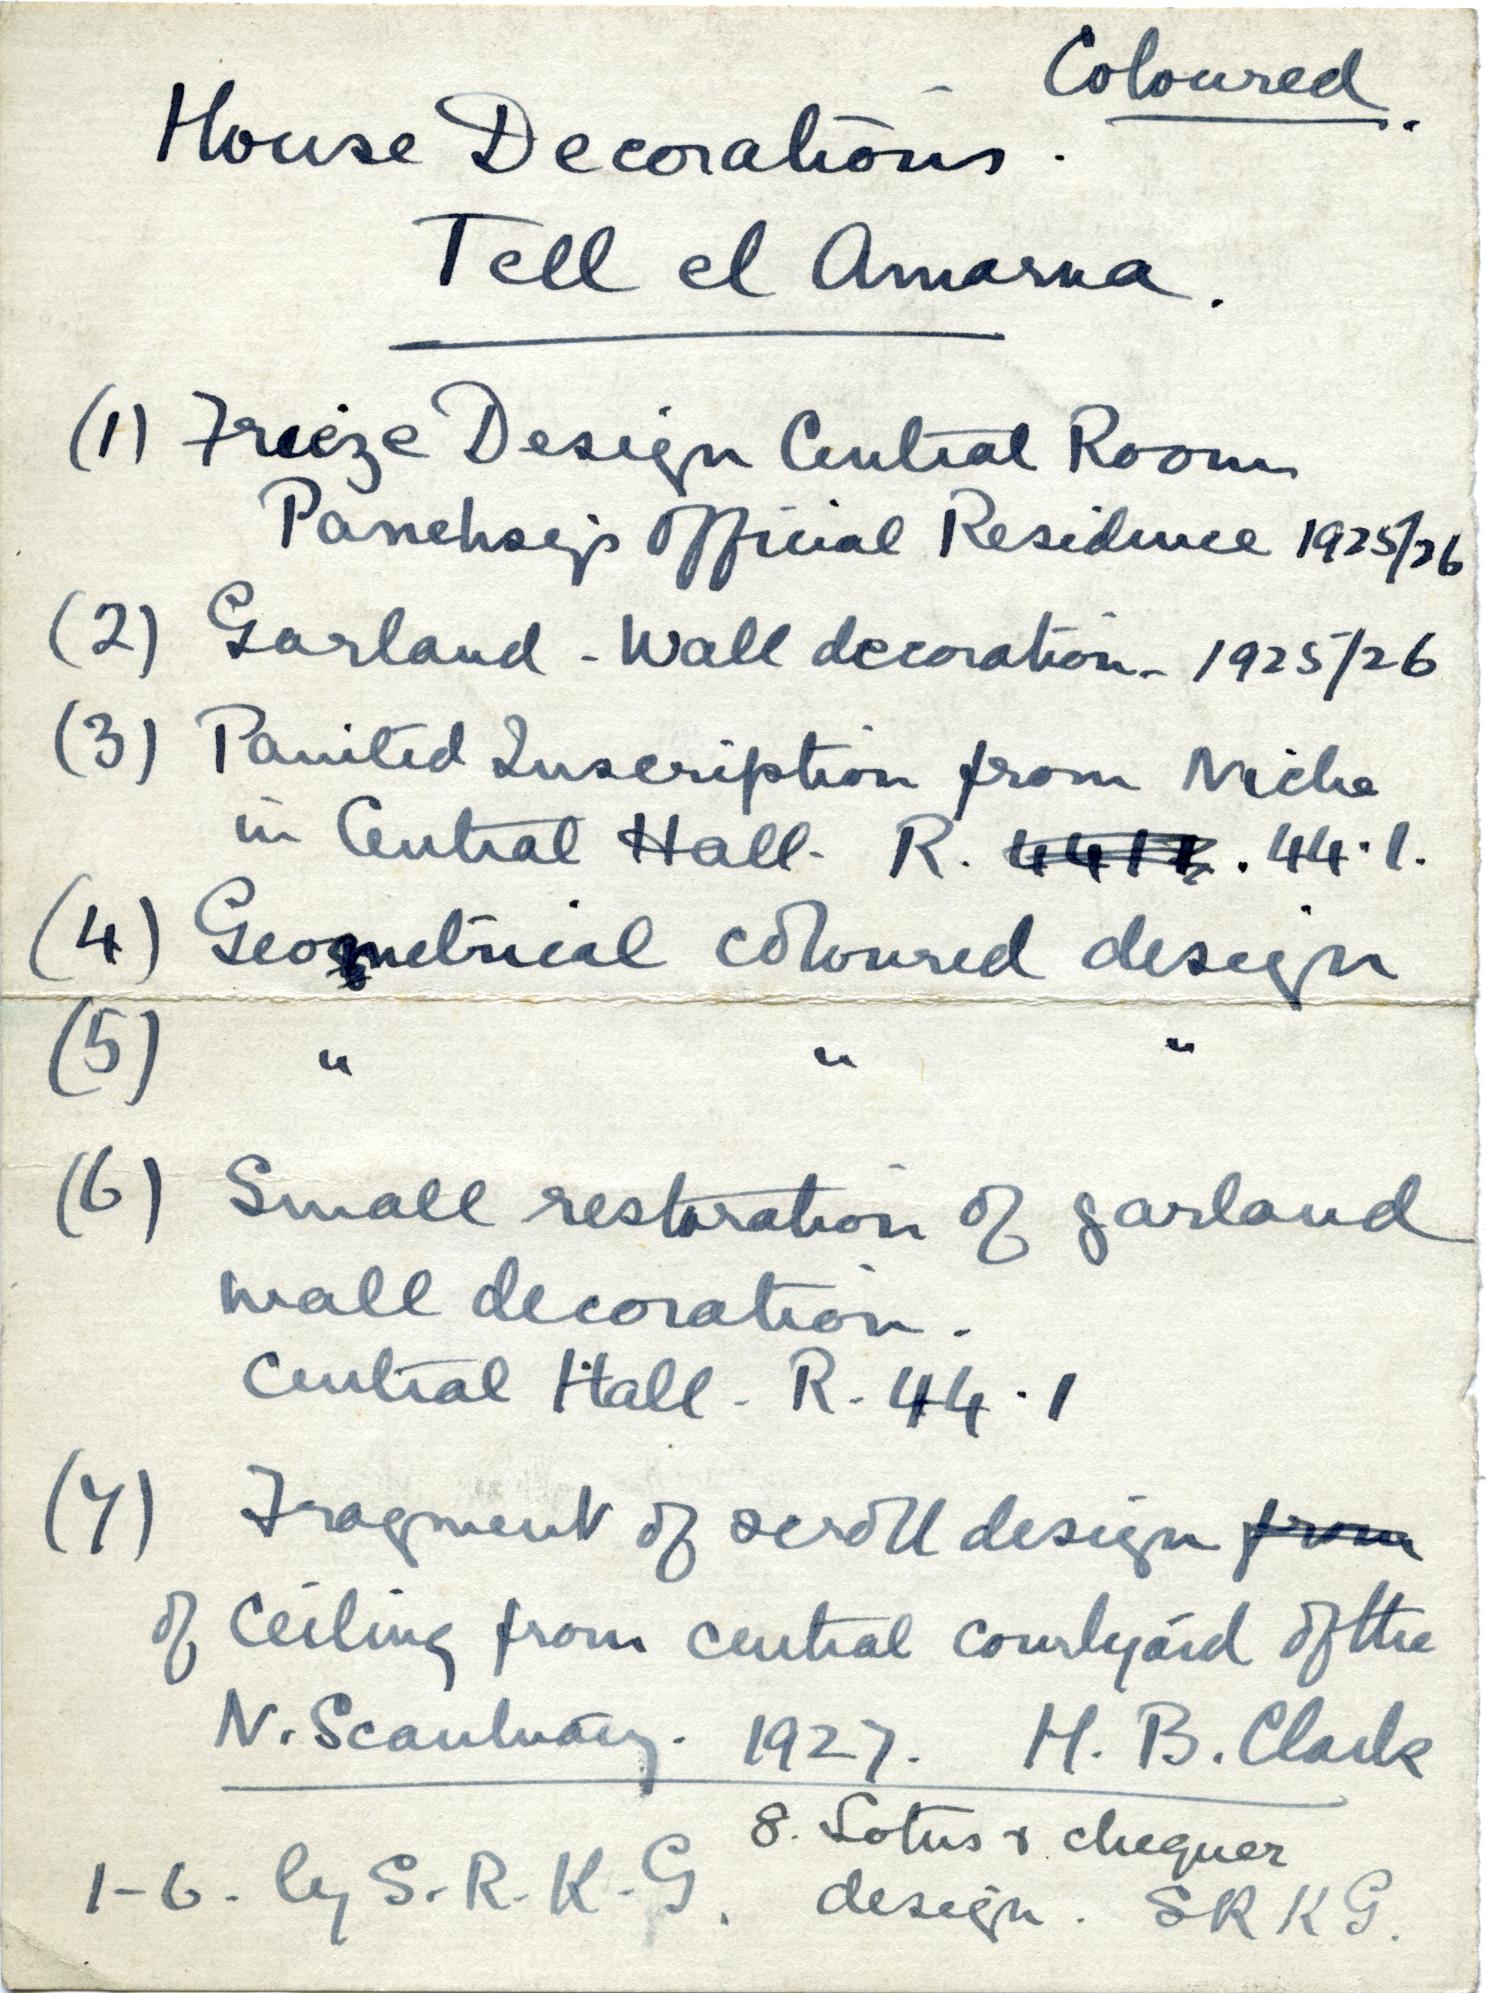 Coloured.
House Decorations.
Tell el Amarna.
(1) Frieze Design Central Room
Panehsy's Official Residence 1925/26
(2) Garland - Wall decoration - 1925/26
(3) Painted Inscription from Niche
in Central Hall - R. 44.1.
(4) Geometrical coloured design
(5) " " "
(6) Small restoration of garland
wall decoration.
Central Hall - R. 44.1
(7) Fragment of scroll design from
of ceiling from central courtyard of the
N. Scantuary. 1927. H. B. Clark
8. Lotus & chequer
1-6. by S. R. K. G. design. SRKG.